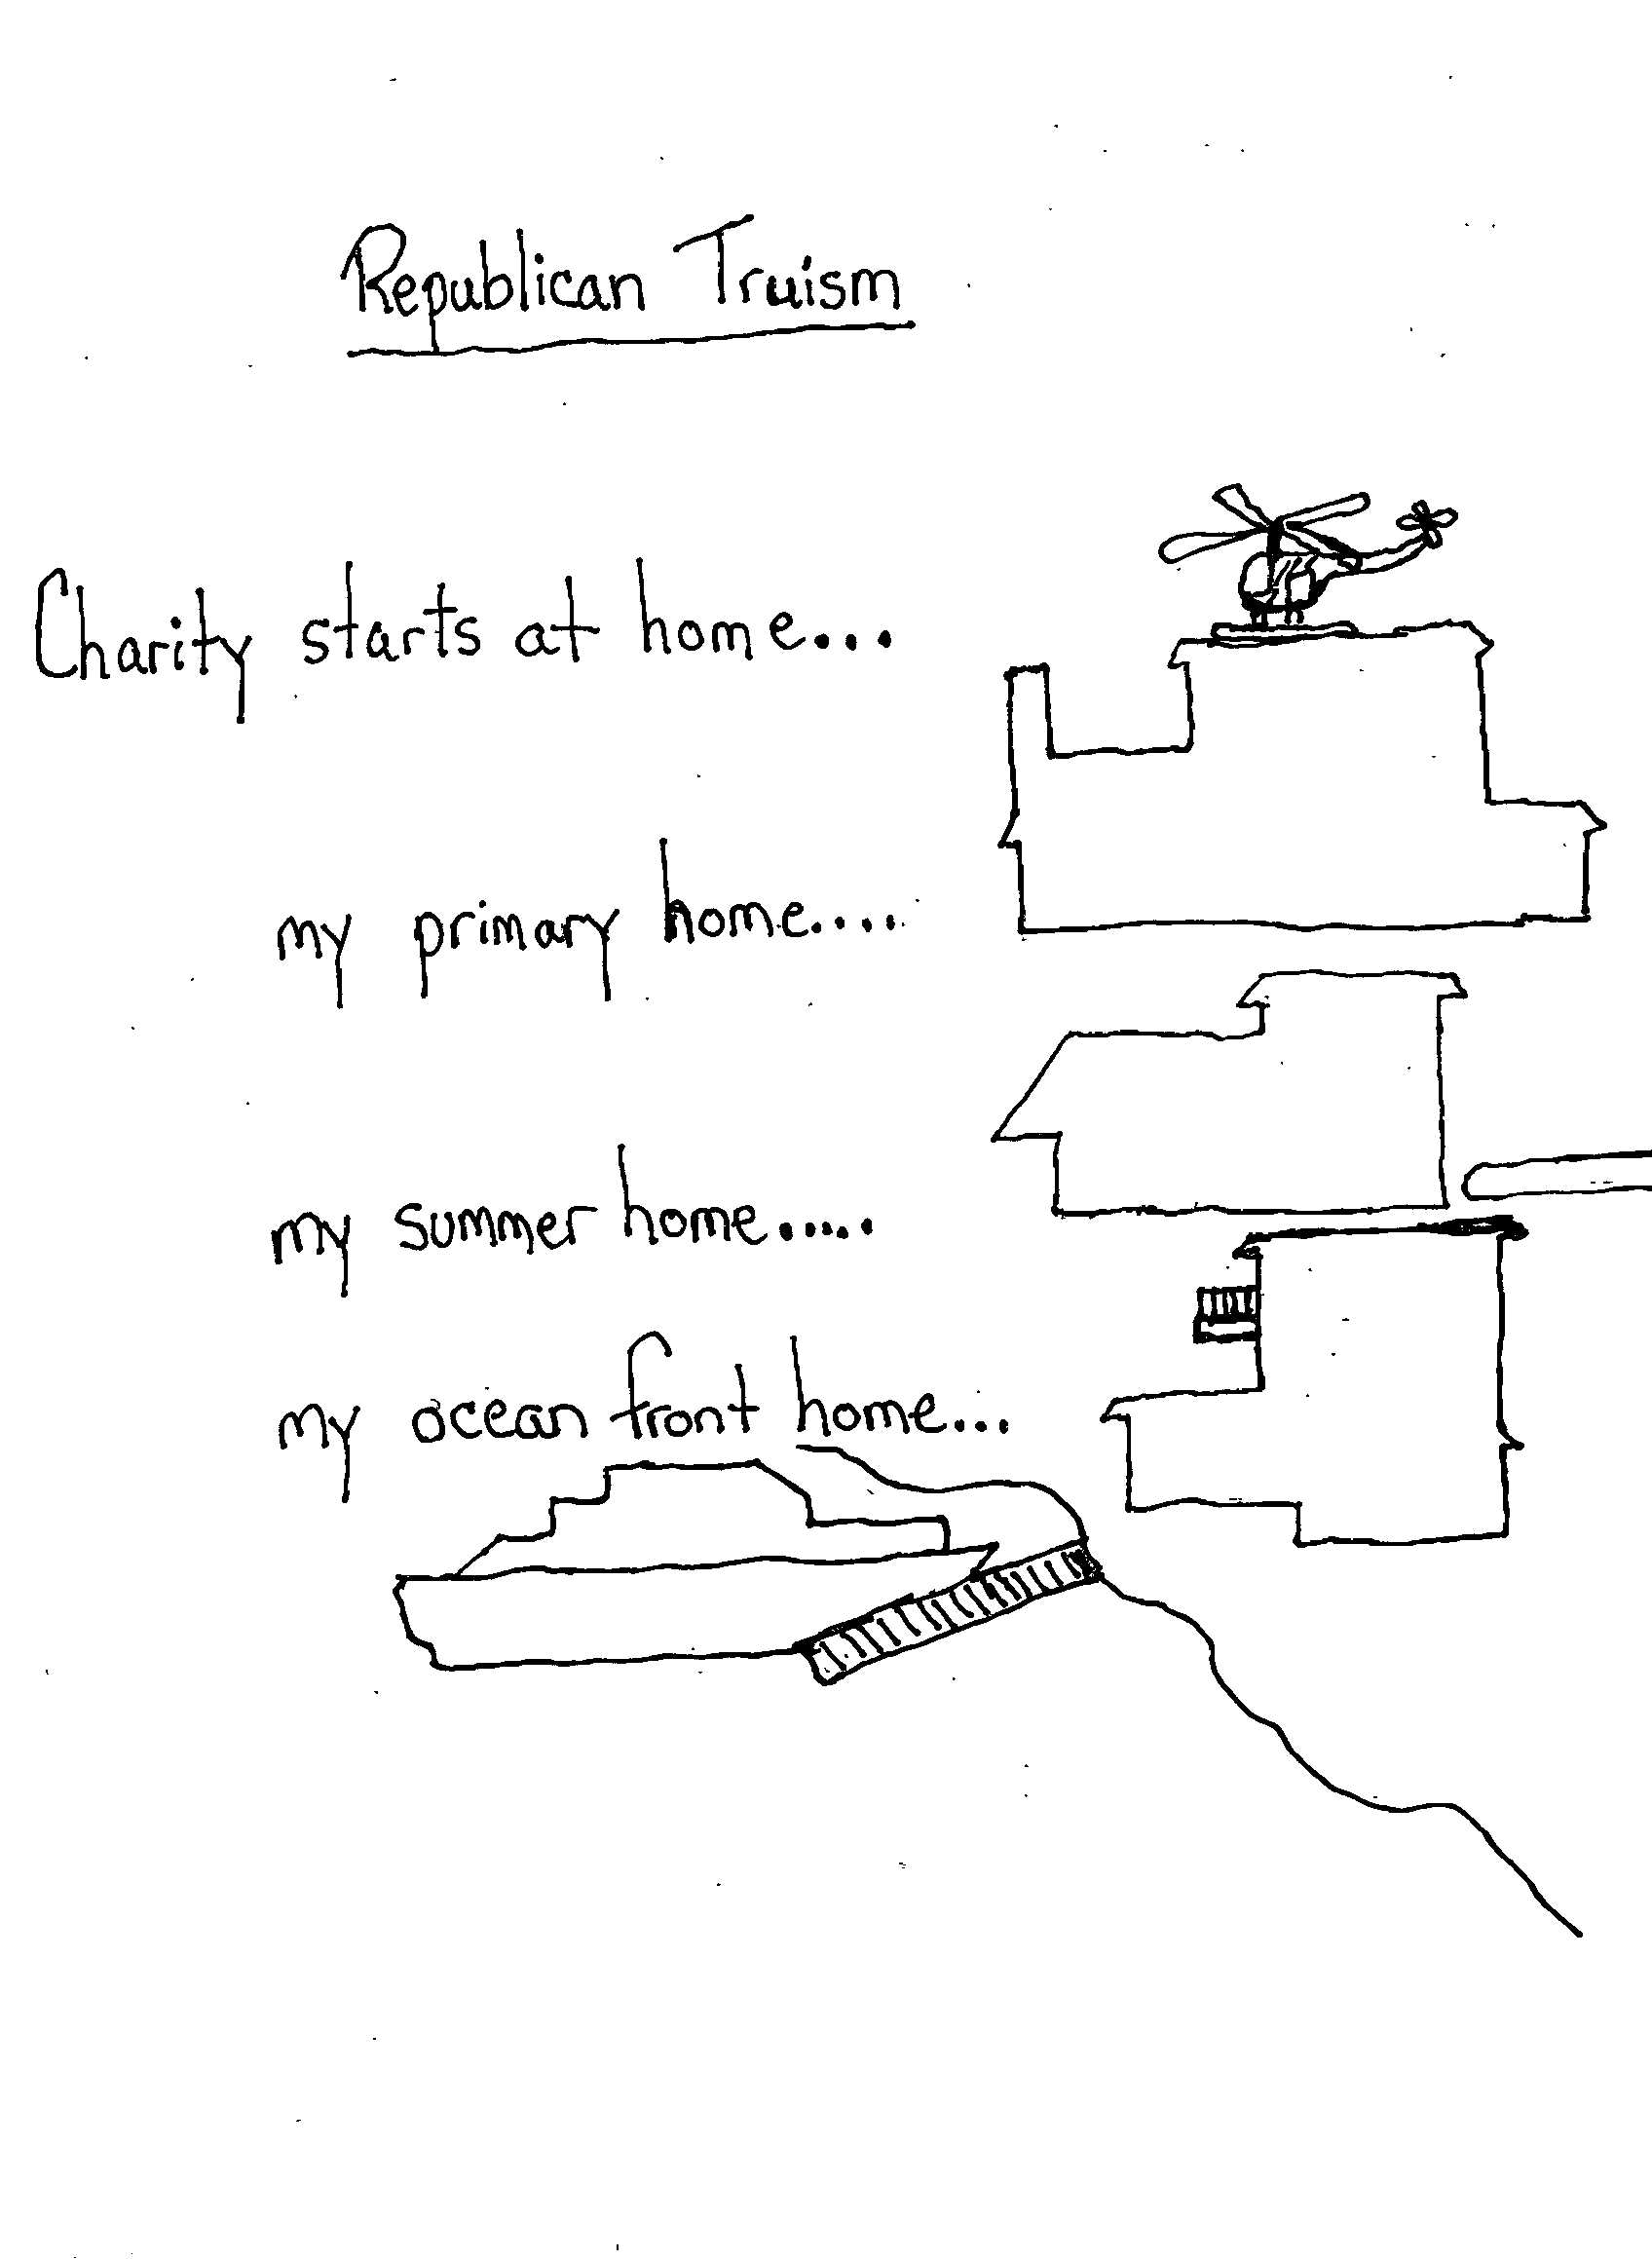 Republican Truism
Charity starts at home...
my primary home....
my summer home.....
my ocean front home...